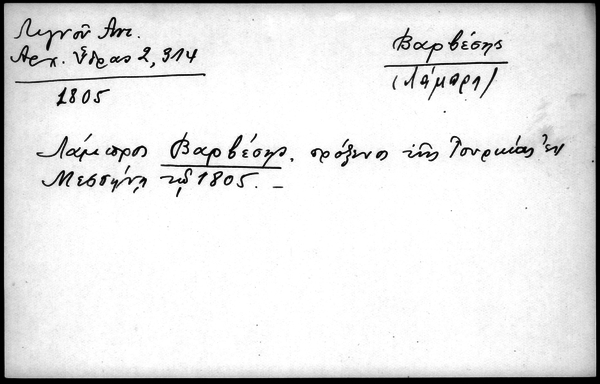 Λιγνοῦ Αντ.
Αρχ. Ὕδρας 2, 314
1805
Βαρβέσης
(Λάμπρ)
Λάμπρος Βαρβέσης. πρόξενος τῆς Τουρκίας ἐν
Μεσσήνῃ τῷ 1805. –